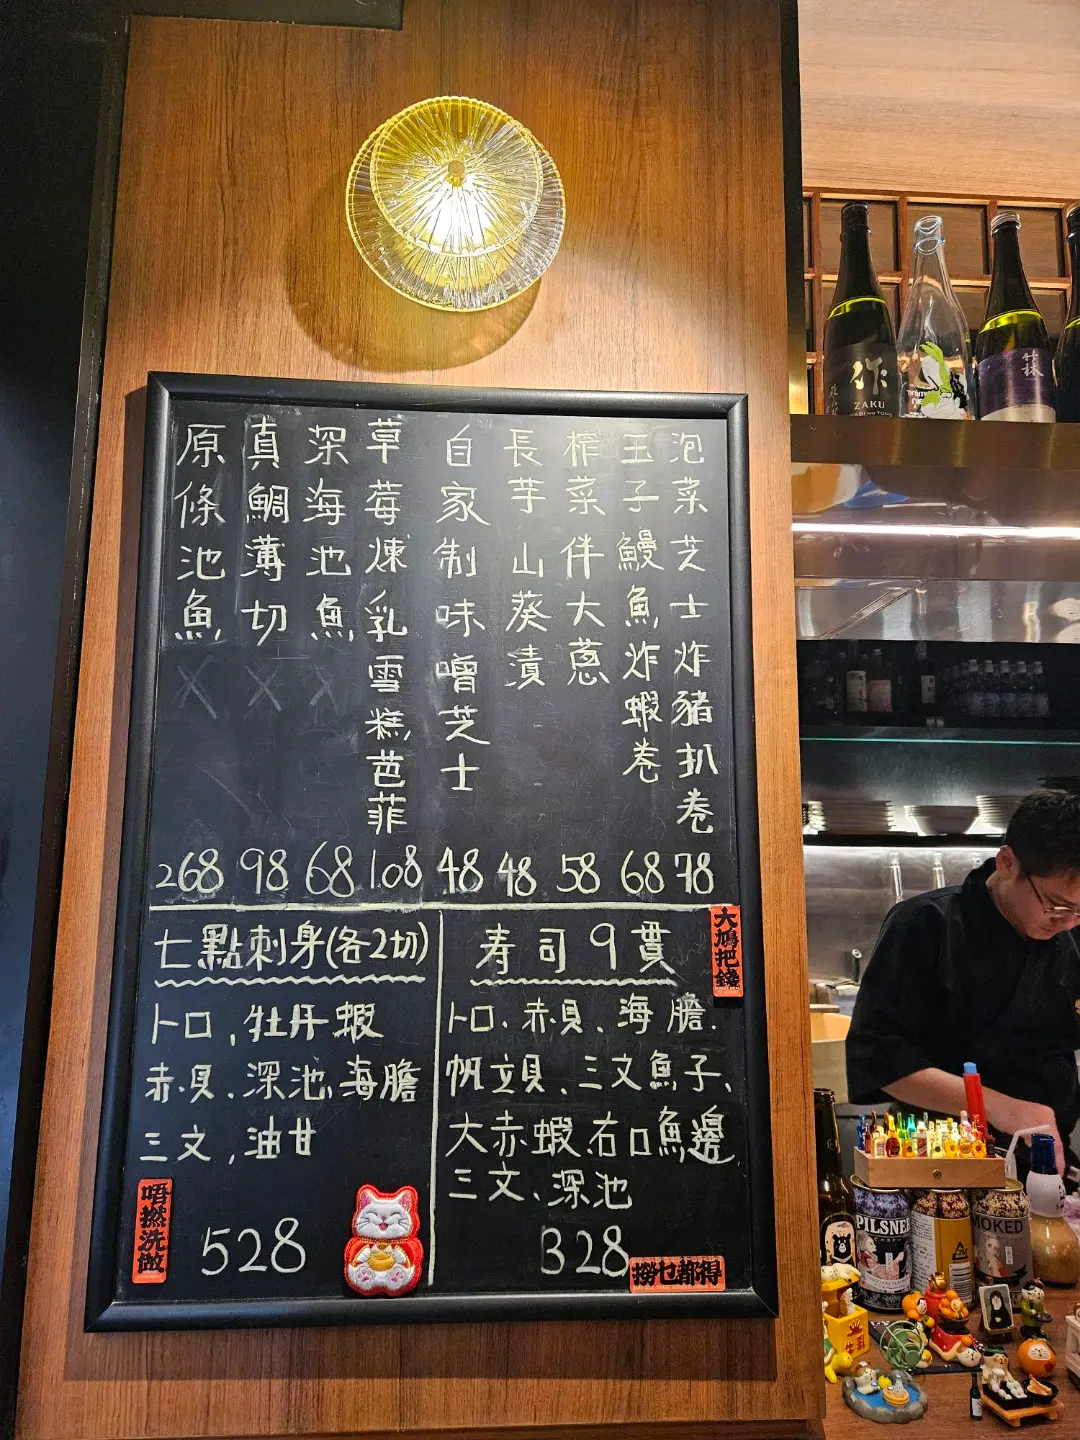 泡菜芝士炸豬扒卷 78
玉子鰻魚炸蝦卷 68
榨菜伴大蔥 58
長芋山葵漬 48
自家制味噌芝士 48
草莓煉乳雪糕芭菲 108
深海池魚 X 68
真鯛薄切 X 98
原條池魚 X 268
七點刺身(各2切)
トロ,牡丹蝦
赤貝、深池、海膽
三文,油甘
528
寿司9貫
トロ、赤貝、海膽、
帆立貝、三文魚子、
大赤蝦、右口魚邊
三文、深池
328
大鳩把錢
唔撚洗做
撈乜都得
作
ZAKU
竹林
PILSNER
MOKED